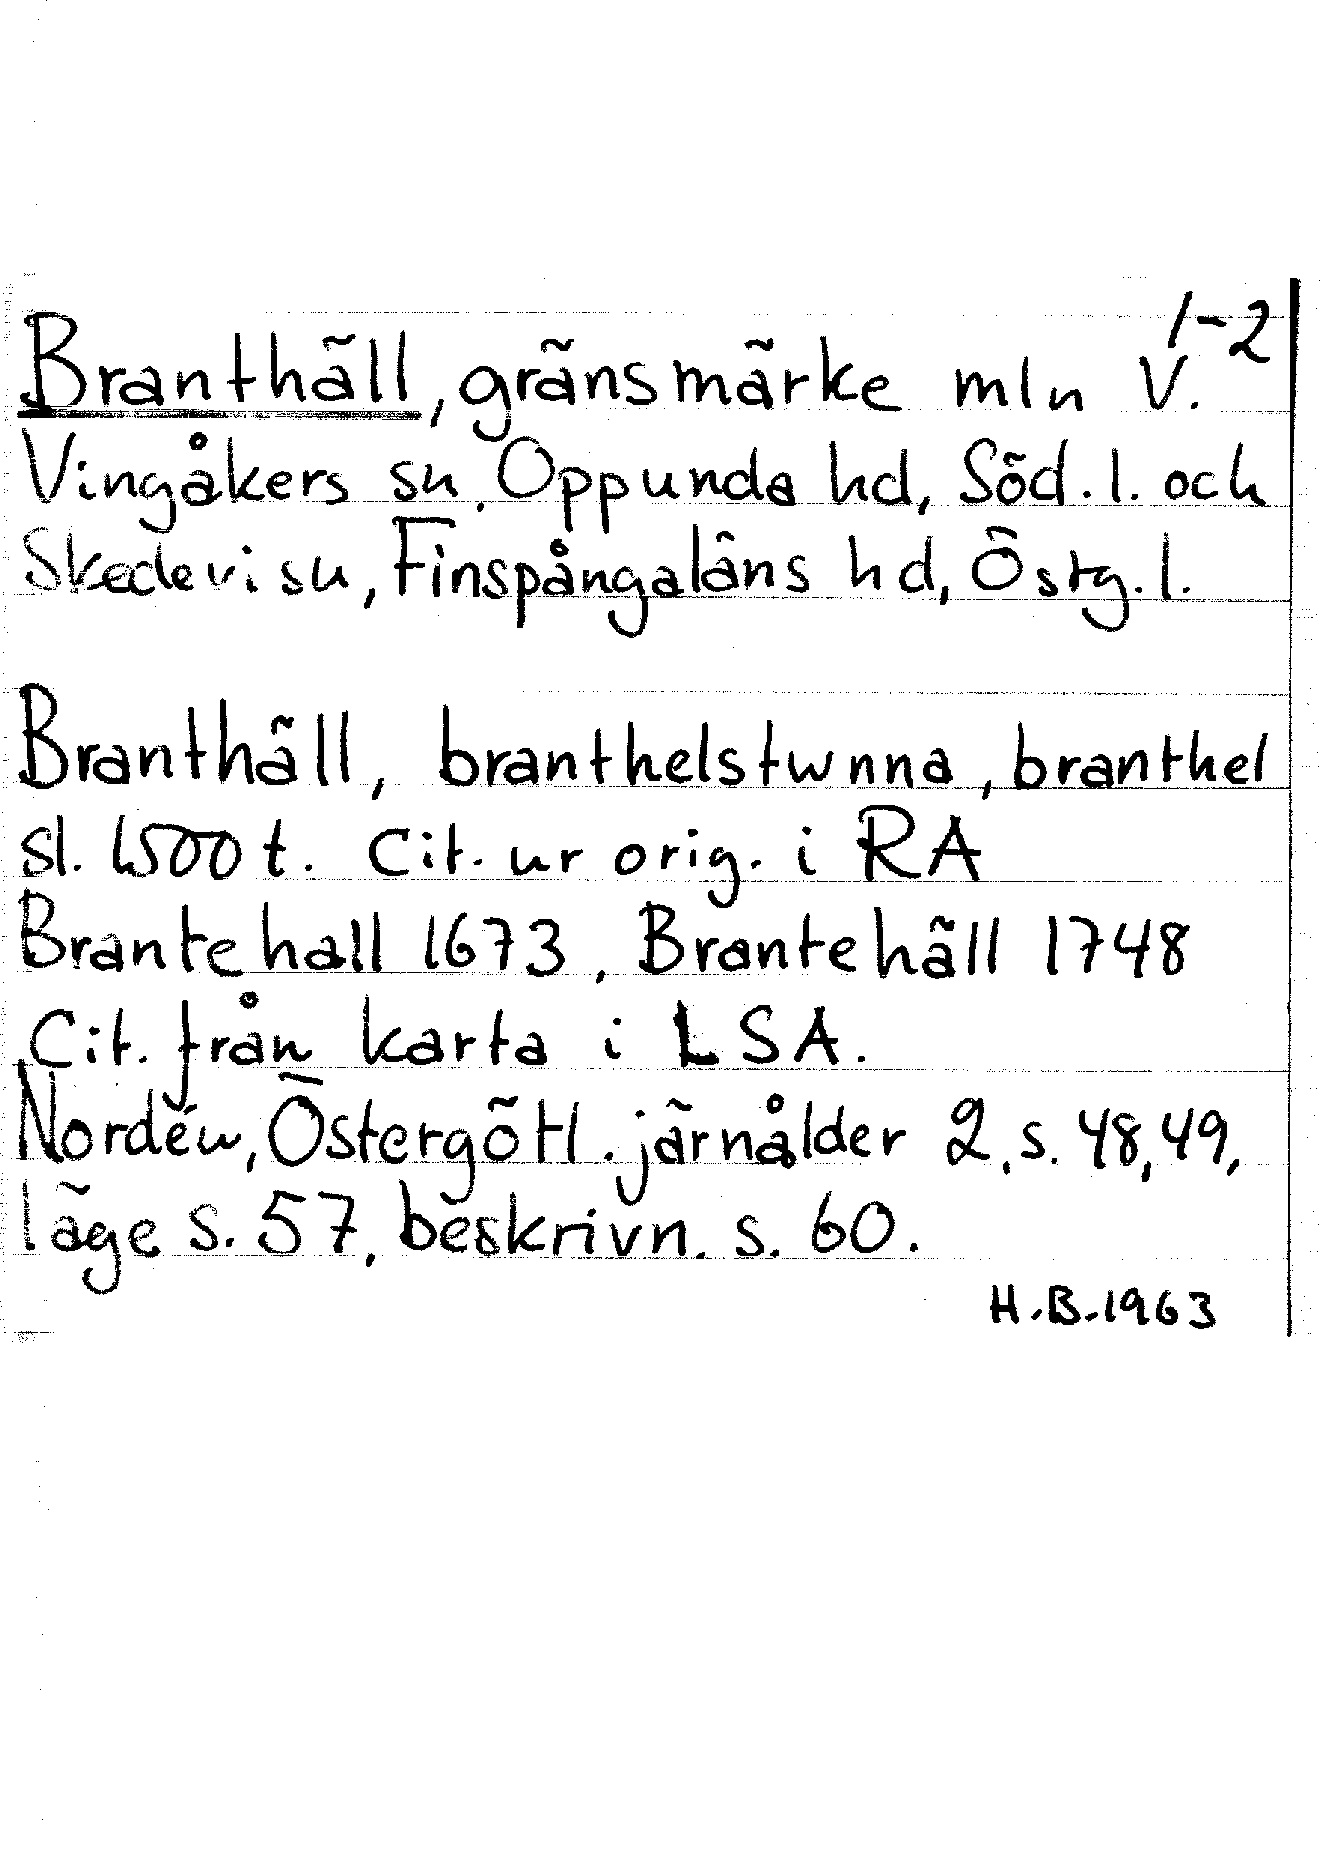 1-2
Branthäll, gränsmärke mln V.
Vingåkers sn, Oppunda hd, Söd. l. och
Skedevi sn, Finspångaläns hd, Östg. l.
Branthäll, branthelstwnna, branthel
sl. 1500 t. Cit. ur orig. i RA
Brantehall 1673, Brantehäll 1748
Cit. från karta i LSA.
Nordén, Östergötl. järnålder 2, s. 48, 49,
läge s. 57, beskrivn. s. 60.
H.B. 1963